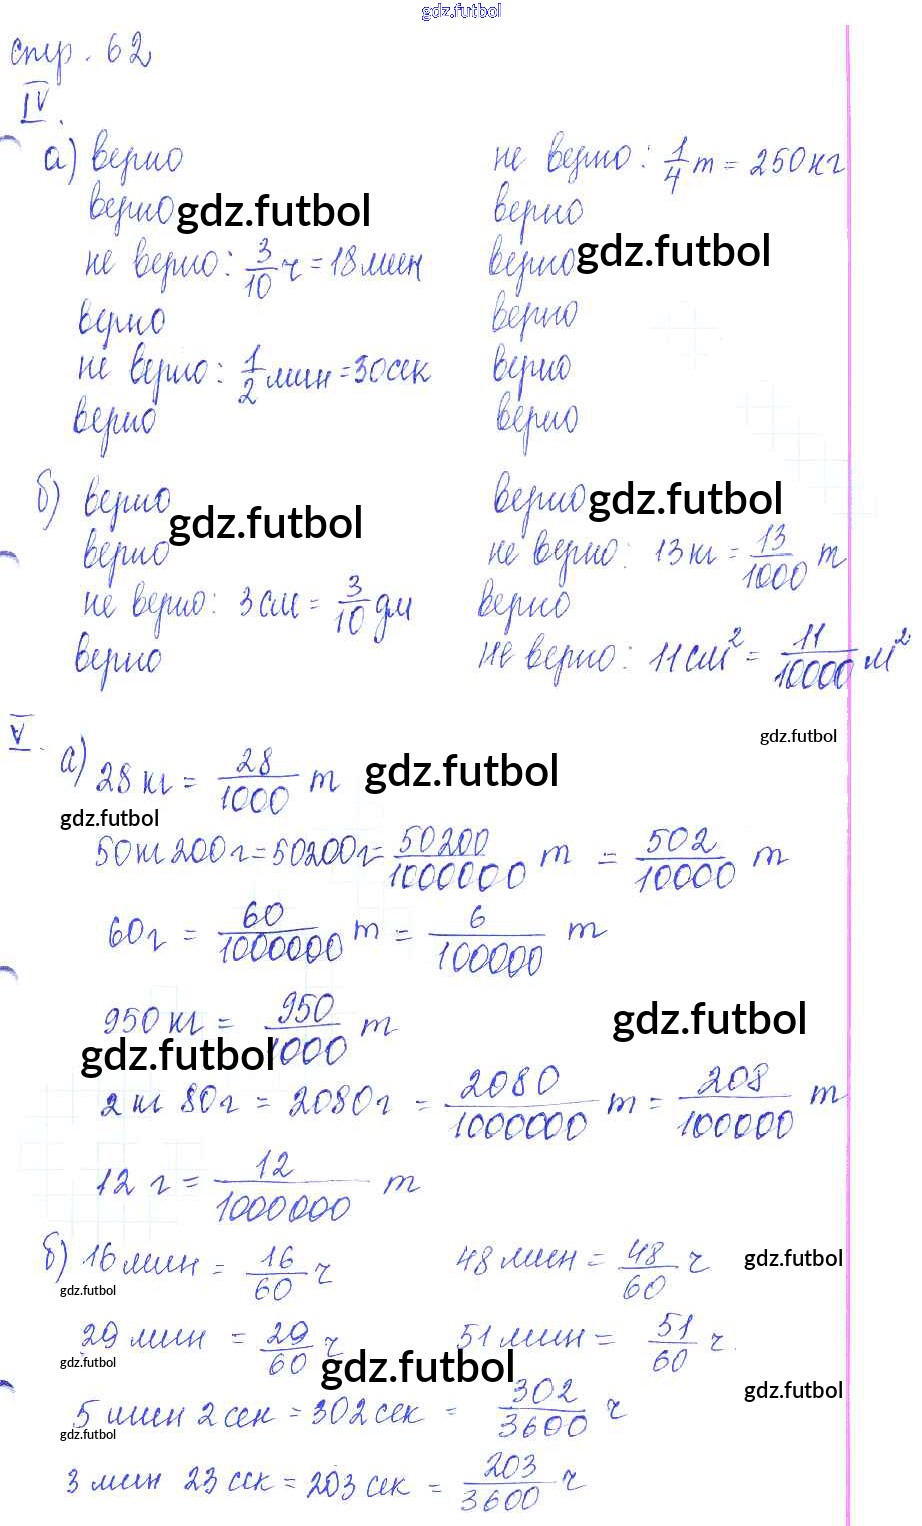 gdz.futbol
стр. 62
IV.
а) верно не верно: 1/4 т = 250 кг
верно gdz.futbol верно
не верно: 3/10 ч = 18 мин верно gdz.futbol
верно верно
не верно: 1/2 мин = 30 сек верно
верно верно
б) верно gdz.futbol верно gdz.futbol
верно не верно: 13 кг = 13/1000 т
не верно: 3 см = 3/10 дм верно
верно не верно: 11 см² = 11/10000 м²
V. gdz.futbol
а) 28 кг = 28/1000 т gdz.futbol
gdz.futbol
50 кг 200 г = 50200 г = 50200/1000000 т = 502/10000 т
60 г = 60/1000000 т = 6/100000 т
950 кг = 950/1000 т gdz.futbol
gdz.futbol
2 кг 80 г = 2080 г = 2080/1000000 т = 208/100000 т
12 г = 12/1000000 т
б) 16 мин = 16/60 ч 48 мин = 48/60 ч gdz.futbol
gdz.futbol
29 мин = 29/60 ч 51 мин = 51/60 ч
gdz.futbol gdz.futbol gdz.futbol
5 мин 2 сек = 302 сек = 302/3600 ч
gdz.futbol
3 мин 23 сек = 203 сек = 203/3600 ч